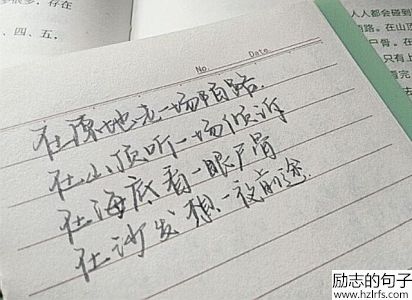 多，存在
四、五．
人人都会碰到
陌路。在山顶
尸骨。在
No. Date
在原地走一场陌路
在山顶听一场倾诉
在海底看一眼尸骨
在沙发想一夜前途
励志的句子
www.hzlrfs.com